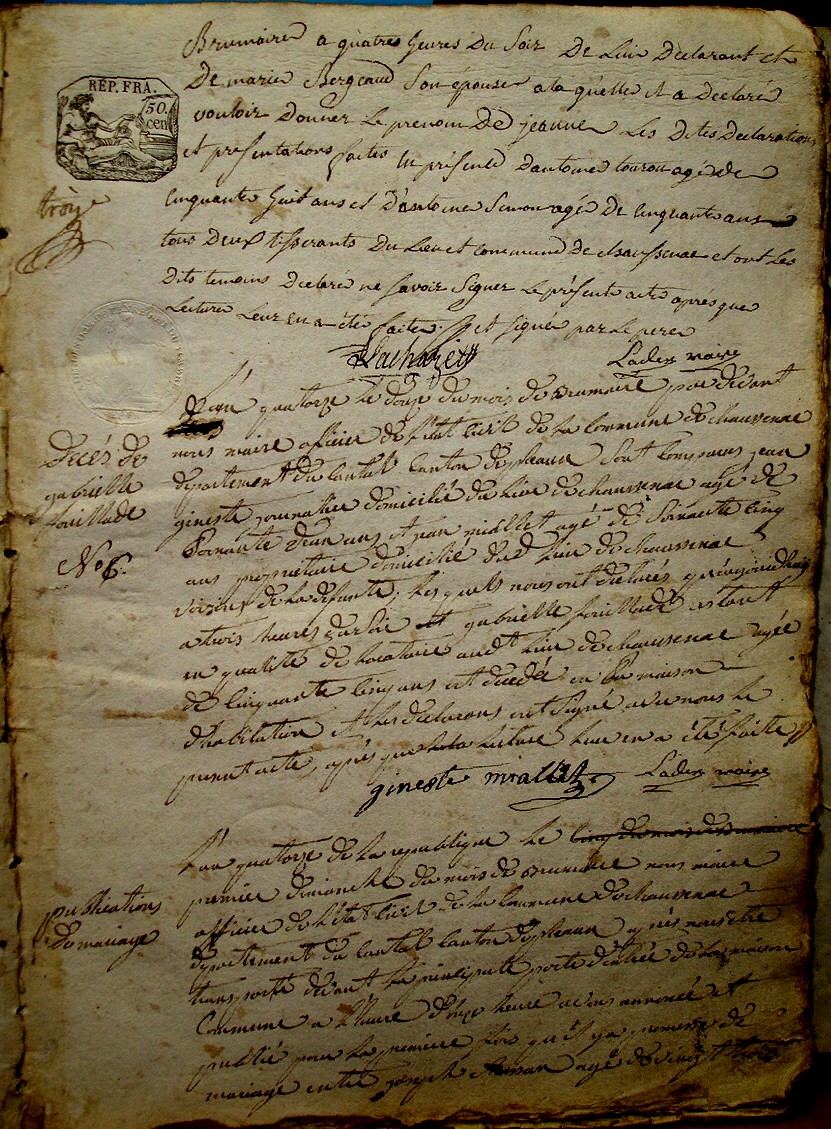 Brumaire a quatres heures du Soir De Lui Déclarant et
De marie Bergeaud Son épouse a la quelle il a Déclaré
vouloir Donner Le prenom De jeanne Les Dites Declarations
et présentations faites En présence D'antoine tourou agé De
Cinquante huit ans et D'antoine Simon agé De Cinquante ans
tous Deux tisserants Du Lieu et Commune de chaussenac et ont Les
Dits temoins Déclaré ne Savoir Signer Le présent acte après que
Lecture Leur en a été faite. et Signé par Le pere
Laden maire
REP. FRA.
50. cen
troize
Decés de
gabrielle
fouillade
No 6.
L'an quatorze le douze du mois de Brumaire par devant
nous maire officier de l'etat Civil de la Commune de chaussenac
departement du Cantal Canton de pleaux Sont Comparus jean
gineste journalier domicilié du lieu de chaussenac agé de
Soixante d'un ans et jean miallet agé de Soixante Cinq
ans propriétaire domicilié dud. lieu de chaussenac
voisins de la défunte; les quels nous ont declarés qu'aujourd'huy
a trois heures du Soir gabrielle fouillade estant
en qualité de locataire aud.t lieu de chaussenac agée
de Cinquante Cinq ans est decedée en Sa maison
d'habitation et les declarans ont Signé avec nous le
present acte, après que la lecture leur en a été faite
gineste miallet Laden maire
publications
de mariage
L'an quatorze de la republique le cinq du mois de Brumaire
premier dimanche du mois de Brumaire nous maire
officier de l'état Civil de la Commune de chaussenac
departement du Cantal Canton de pleaux après nous etre
transporté devant la principale porte d'entrée de la maison
Commune a l'heure d'onze heure avons annoncé et
publié pour la première fois qu'il y a promesse de
mariage entre joseph agé de vingt trois